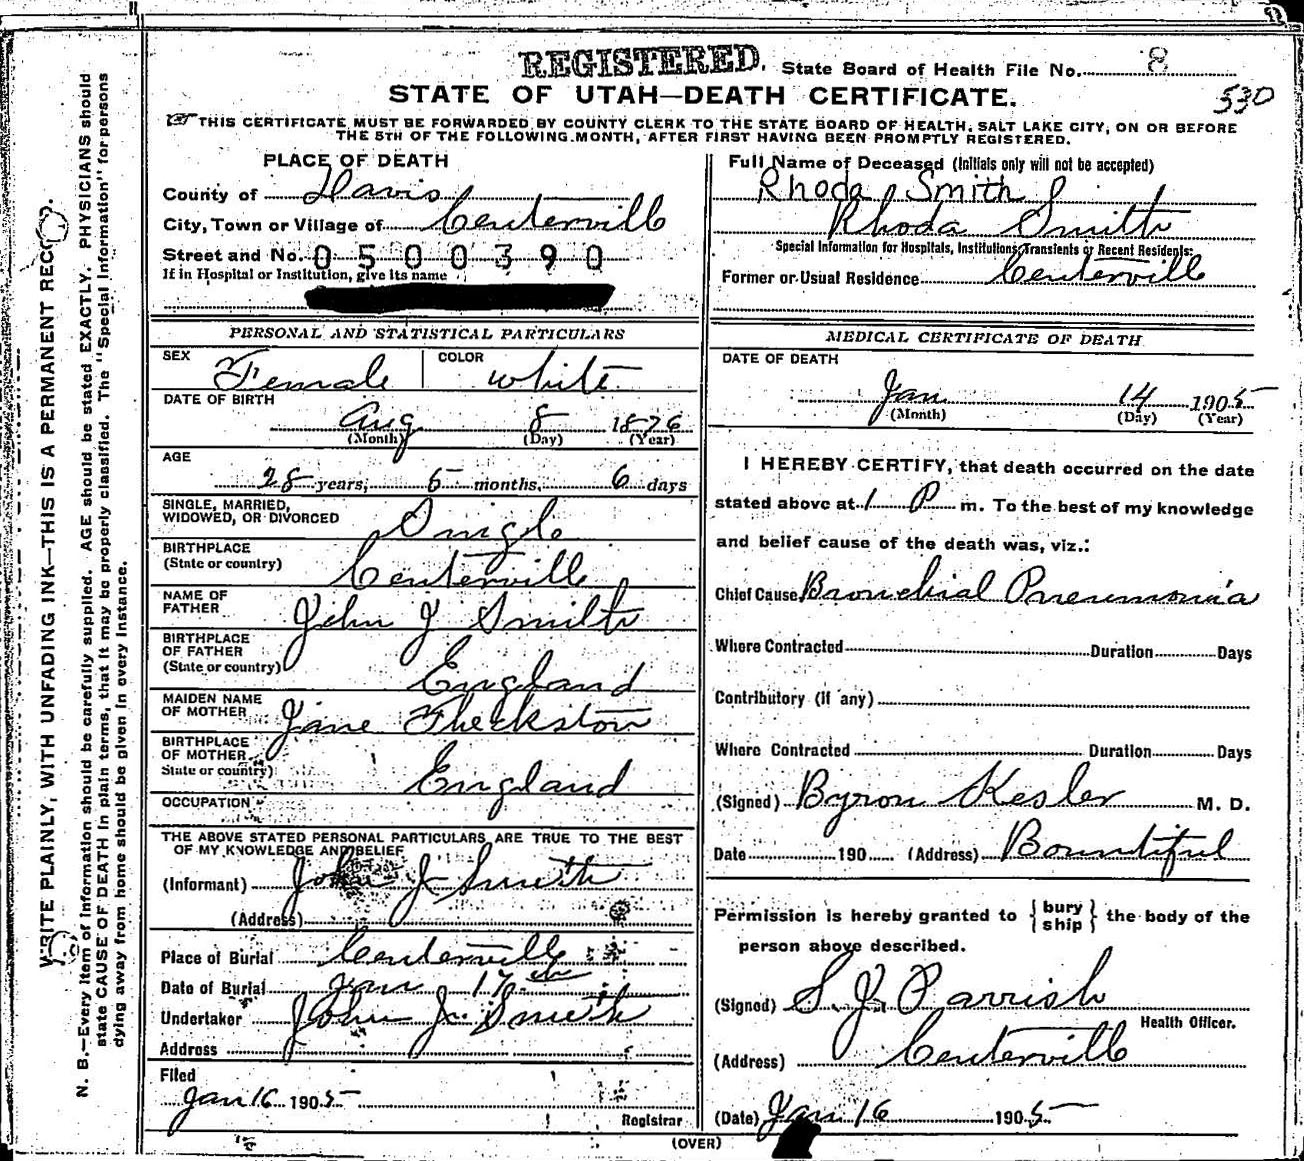 REGISTERED. State Board of Health File No. 8
STATE OF UTAH—DEATH CERTIFICATE. 530
THIS CERTIFICATE MUST BE FORWARDED BY COUNTY CLERK TO THE STATE BOARD OF HEALTH, SALT LAKE CITY, ON OR BEFORE
THE 5TH OF THE FOLLOWING MONTH, AFTER FIRST HAVING BEEN PROMPTLY REGISTERED.
WRITE PLAINLY, WITH UNFADING INK—THIS IS A PERMANENT
N. B.—Every item of information should be carefully supplied. AGE should be stated EXACTLY. PHYSICIANS should
state CAUSE OF DEATH in plain terms, that it may be properly classified. The "Special Information" for persons
dying away from home should be given in every instance.
PLACE OF DEATH
County of Davis
City, Town or Village of Centerville
Street and No. 0500390
If in Hospital or Institution, give its name
PERSONAL AND STATISTICAL PARTICULARS
SEX Female COLOR White
DATE OF BIRTH
Aug 8 1876
(Month) (Day) (Year)
AGE
28 years, 5 months, 6 days
SINGLE, MARRIED,
WIDOWED, OR DIVORCED Single
BIRTHPLACE
(State or country) Centerville
NAME OF
FATHER John J Smith
BIRTHPLACE
OF FATHER
(State or country) England
MAIDEN NAME
OF MOTHER Jane Theckston
BIRTHPLACE
OF MOTHER
State or country) England
OCCUPATION
THE ABOVE STATED PERSONAL PARTICULARS ARE TRUE TO THE BEST
OF MY KNOWLEDGE AND BELIEF
(Informant) John J Smith
(Address)
Place of Burial Centerville
Date of Burial Jan 17th
Undertaker John J. Smith
Address
Filed
Jan 16 1905
Registrar
Full Name of Deceased (Initials only will not be accepted)
Rhoda Smith
Rhoda Smith
Special Information for Hospitals, Institutions, Transients or Recent Residents:
Former or Usual Residence Centerville
MEDICAL CERTIFICATE OF DEATH
DATE OF DEATH
Jan 14 1905
(Month) (Day) (Year)
I HEREBY CERTIFY, that death occurred on the date
stated above at 1 P m. To the best of my knowledge
and belief cause of the death was, viz.:
Chief Cause Bronchial Pneumonia
Where Contracted Duration Days
Contributory (if any)
Where Contracted Duration Days
(Signed) Byron Kesler M. D.
Date 190 (Address) Bountiful
Permission is hereby granted to { bury
ship } the body of the
person above described.
(Signed) S. J. Parrish
Health Officer.
(Address) Centerville
(Date) Jan 16 1905
(OVER)